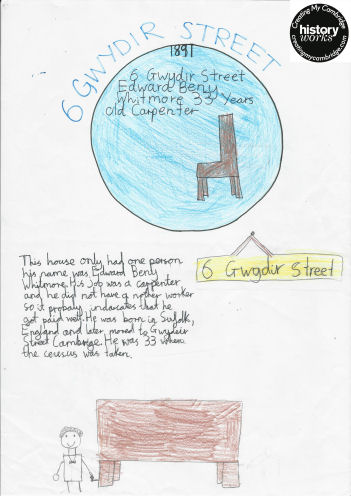 Creating My Cambridge
history
works
creatingmycambridge.com
6 GWYDIR STREET
1891
6 Gwydir Street
Edward Beny
Whitmore 33 Years
Old Carpenter
This house only had one person
his name was Edward Beny
Whitmore. His Job was a carpenter
and he did not have a nother worker
so it probably indacates that he
got paid well. He was born in Suffolk,
England and later moved to Gwydeir
Street Cambrige. He was 33 when
the census was taken.
6 Gwydir Street